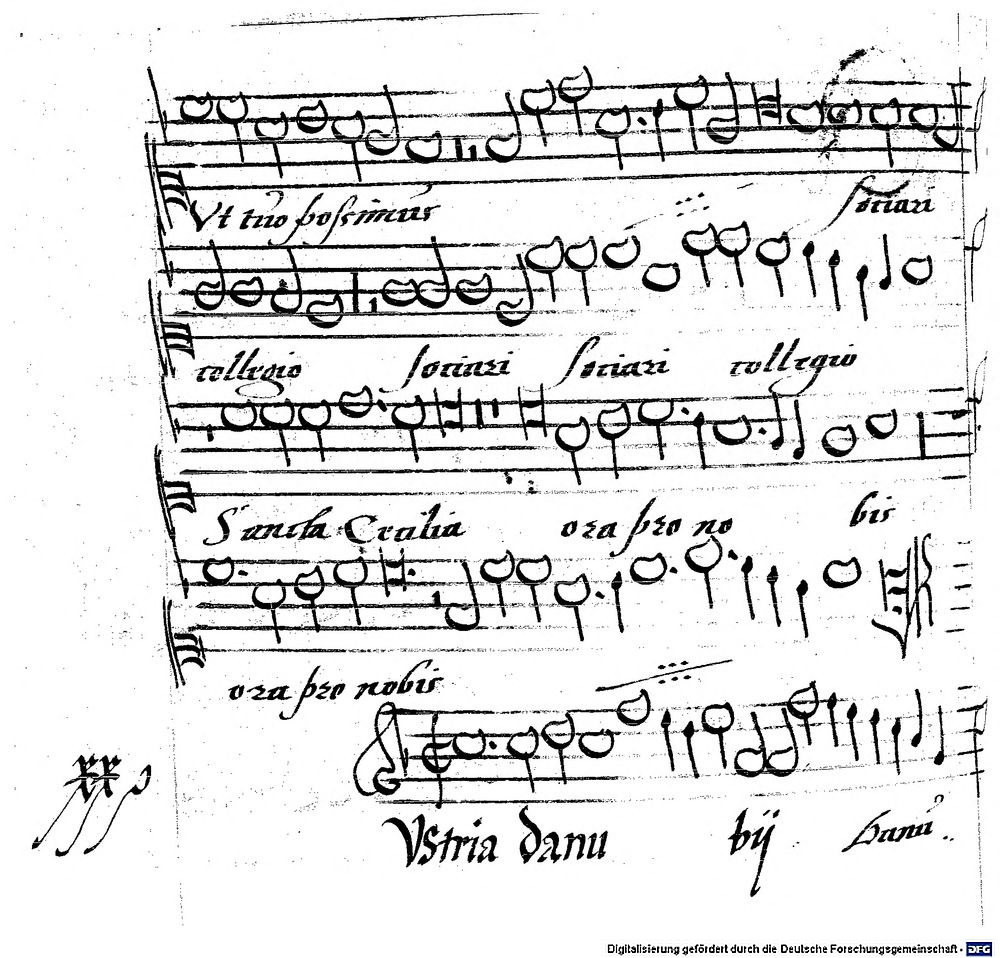 Vt tuo possimus sociari
collegio sociari sociari collegio
Sancta Cecilia ora pro no bis
ora pro nobis
Vstria danu bij danu
Digitalisierung gefördert durch die Deutsche Forschungsgemeinschaft - DFG